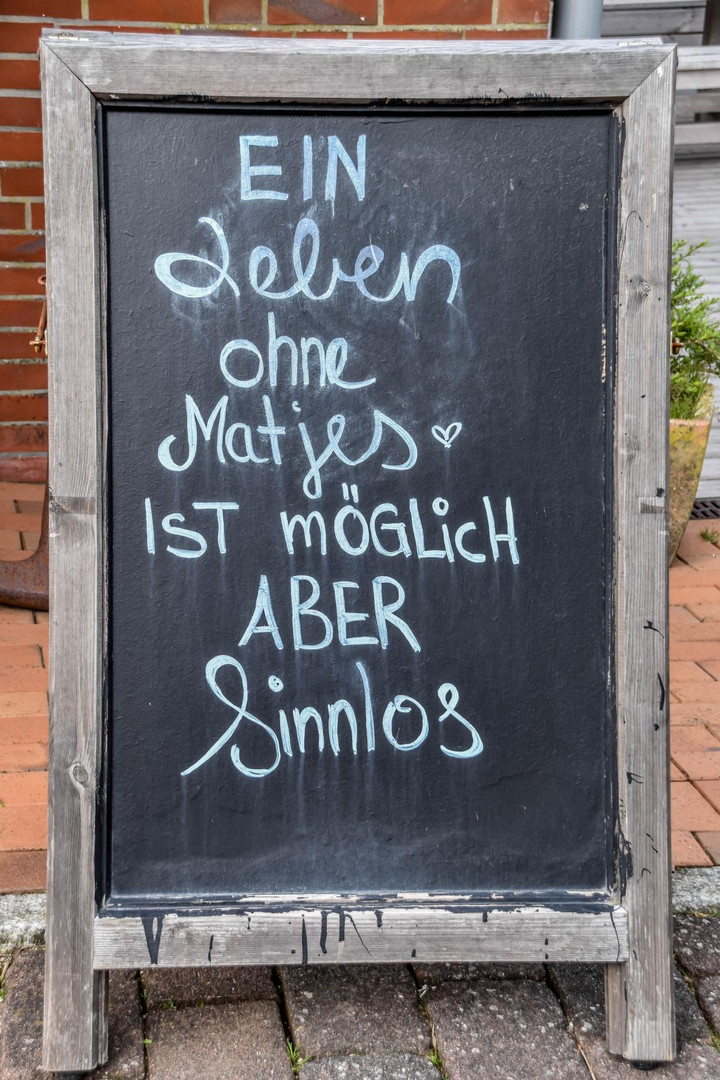 EIN
Leben
ohne
Matjes ♡
IST MÖGLiCH
ABER
Sinnlos